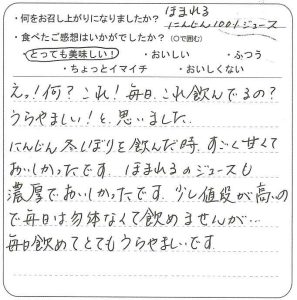 ・何をお召し上がりになりましたか？ ほまれる
にんじん100%ジュース
・食べたご感想はいかがでしたか？(○で囲む)
・とっても美味しい！ ・おいしい ・ふつう
・ちょっとイマイチ ・おいしくない
えっ!何?これ!毎日これ飲んでるの?
うらやましい!と思いました.
にんじん冬しぼりを飲んだ時、すごく甘くて
おいしかったです. ほまれるのジュースも
濃厚でおいしかったです. 少し値段が高いの
で毎日は勿体なくて飲めませんが…
毎日飲めてとてもうらやましいです.